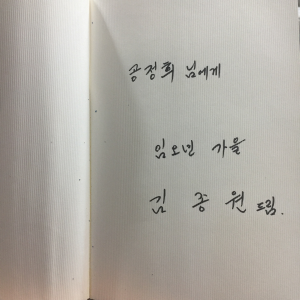 공정희 님에게
임오년 가을
김종원 드림.